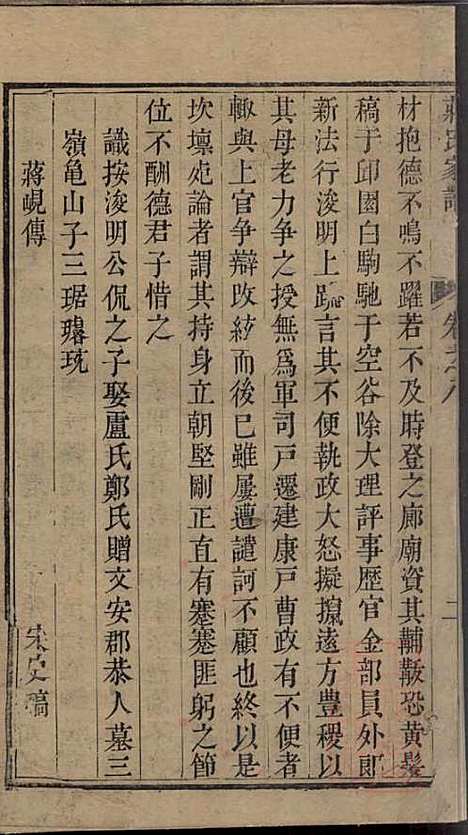 蔣氏家譜 卷之八 二
材抱德不鳴不躍若不及時登之廊廟資其黼黻恐黃髮
稿于邱園白駒馳于空谷除大理評事歷官金部員外郎
新法行浚明上疏言其不便執政大怒擬擯遠方豐稷以
其母老力争之授無爲軍司戶遷建康戶曹政有不便者
輙與上官争辯改紗而後已雖屢遭譴訶不顧也終以是
坎壈䖏論者謂其持身立朝堅剛正直有蹇蹇匪躬之節
位不酬德君子惜之
識按浚明公侃之子娶盧氏鄭氏贈文安郡恭人墓三
嶺龜山子三琚璿珫
蔣峴傳 宋史稿